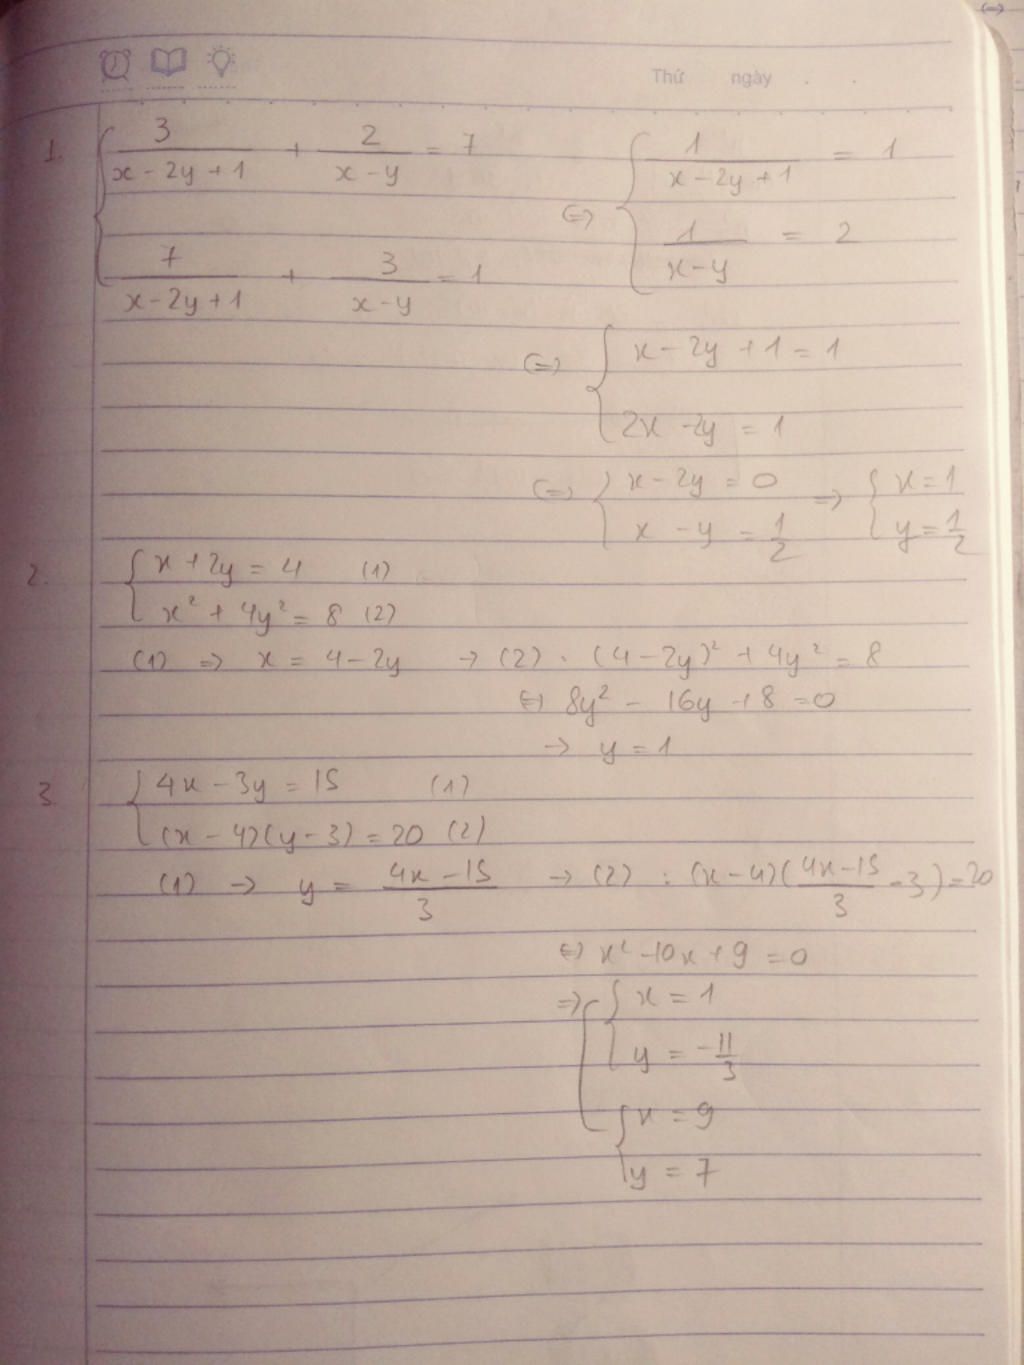 Thứ ngày
1. { 3/(x - 2y + 1) + 2/(x - y) = 7
7/(x - 2y + 1) + 3/(x - y) = 1
⇔ { 1/(x - 2y + 1) = 1
1/(x - y) = 2
⇔ { x - 2y + 1 = 1
2x - 2y = 1
⇔ { x - 2y = 0
x - y = 1/2
⇒ { x = 1
y = 1/2
2. { x + 2y = 4 (1)
x² + 4y² = 8 (2)
(1) ⇒ x = 4 - 2y → (2) . (4 - 2y)² + 4y² = 8
⇔ 8y² - 16y + 8 = 0
→ y = 1
3 { 4x - 3y = 15 (1)
(x - 4)(y - 3) = 20 (2)
(1) → y = (4x - 15)/3 → (2) : (x - 4)((4x - 15)/3 - 3) = 20
⇔ x² - 10x + 9 = 0
⇒ [ { x = 1
y = -11/3
{ x = 9
y = 7